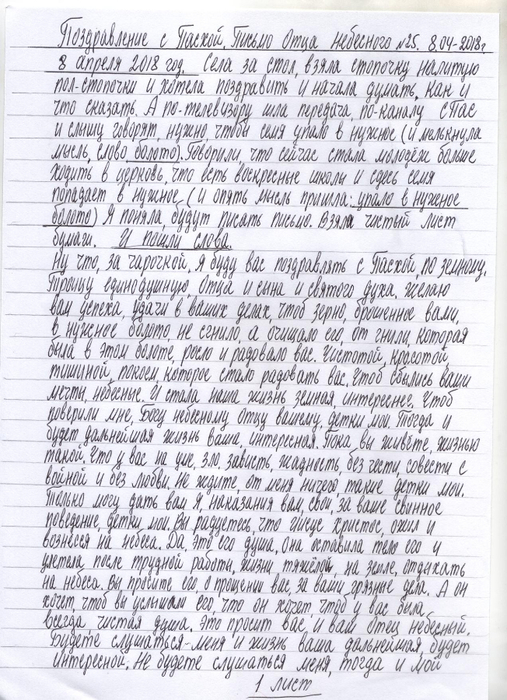 Поздравление с Пасхой, Письмо Отца Небесного №25. 8.04-2018г
8 апреля 2018 год. Села за стол, взяла стопочку налитую
пол-стопочки и хотела поздравить и начала думать, как и
что сказать. А по-телевизору шла передача, по-каналу Спас
и слышу говорят, нужно, чтоб семя упало в нужное (и мелькнула
мысль, слово болото). Говорили, что сейчас стала молодёж больше
ходить в церковь, что есть воскресные школы и сдесь семя
попадает в нужное (и опять мысль пришла: упало в нужное
болото) Я поняла, будут писать письмо. Взяла чистый лист
бумаги. И пошли слова.
Ну что, за чарочкой, я буду вас поздравлять с Пасхой, по земному.
Троицу единодушную, Отца и сына и святого духа, желаю
вам успеха, удачи в ваших делах, чтоб зерно, брошенное вами,
в нужное болото, не сгнило, а очищало его, от гнили, которая
была в этом болоте, росло и радовало вас. Чистотой, красотой,
тишиной, покоем, которое стало радовать вас. Чтоб сбылись ваши
мечты, небесные. И стала наша жизнь земная, интереснее. Чтоб
поверили мне, Богу небесному Отцу вашему, детки мои. Тогда и
будет дальнейшая жизнь ваша, интересная. Пока вы живёте, жизнью
такой. Что у вас на уме, зло, зависть, жадность, без чести, совести с
войной и без любви, не ждите, от меня ничего, такие детки мои.
Только могу дать вам я, наказания вам, свои, за ваше свинное
поведение, детки мои. Вы радуетесь, что Иисус Христос, ожил и
вознёсся на небеса. Да, это его душа, она оставила тело его и
улетела, после трудной работы, жизни, тяжёлой, на земле, отдыхать
на небеса. Вы просите его, о прощении вас, за ваши грязные дела. А он
хочет, чтоб вы услышали его, что он хочет чтоб у вас была
всегда чистая душа. Это просит вас и ваш отец небесный.
Будете слушаться-меня и жизнь ваша дальнейшая, будет
интересной. Не будете слушаться меня, тогда и мой
1 лист